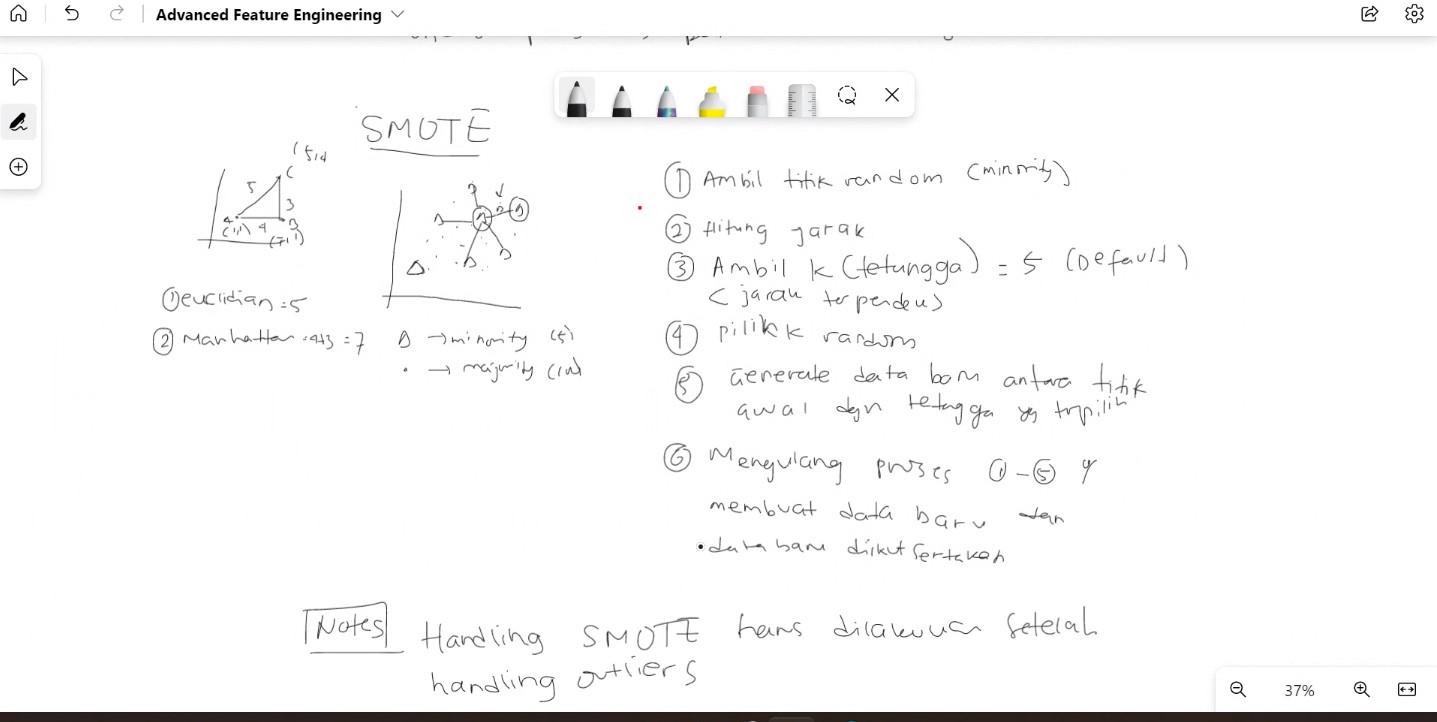 Advanced Feature Engineering
SMOTE
(5,4
C
5
3
A
4
B
(1,1)
① euclidian = 5
② Manhattan = 4+3 = 7
Δ → minority (5)
• → majority
① Ambil titik random (minority)
② Hitung jarak
③ Ambil k (tetungga) = 5 (Default)
< jarak terpendek >
④ pilih k random
⑤ Generate data baru antara titik
awal dgn tetangga yg terpilih
⑥ Mengulang proses ① - ⑤ y
membuat data baru dan
• data baru diikut sertakan
Notes Handling SMOTE harus dilakukan setelah
handling outliers
37%